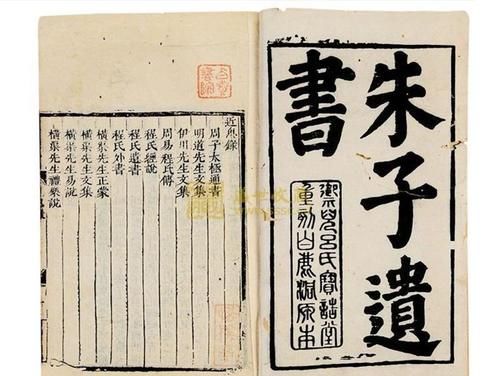 朱子遺
書
禦兒呂氏寶誥堂
重刻白鹿洞原本
近思錄
周子太極通書
明道先生文集
伊川先生文集
周易程氏傳
程氏經說
程氏遺書
程氏外書
橫渠先生正蒙
橫渠先生文集
橫渠先生易說
橫渠先生禮樂說